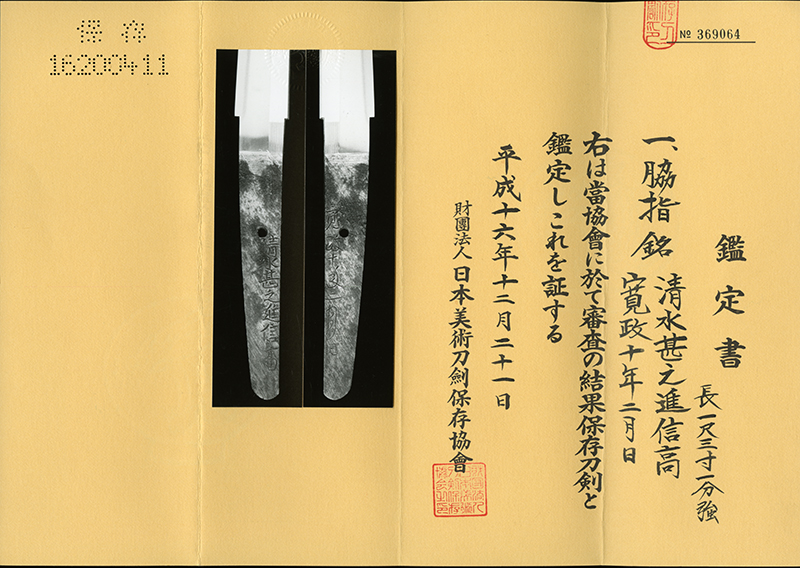 保存
16200411
№ 369064
鑑定書
長一尺三寸一分強
一、脇指 銘 清水甚之進信高
寛政十年二月日
右は當協會に於て審査の結果保存刀剣と
鑑定しこれを証する
平成十六年十二月二十一日
財團法人日本美術刀劍保存協會